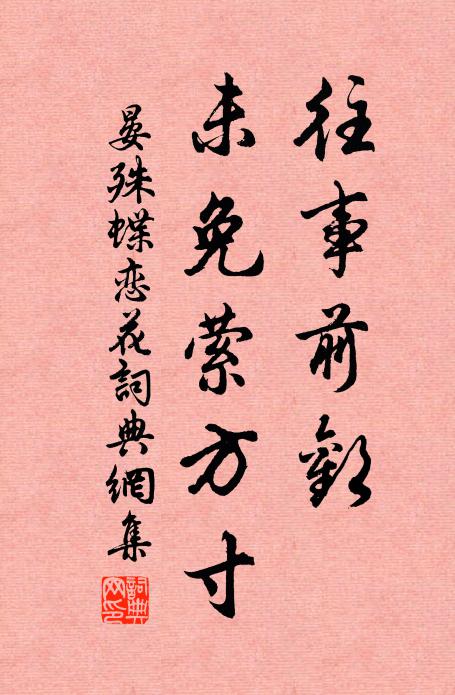 往事前歡
未免縈方寸
晏殊蝶恋花詞典網集
詞典網印